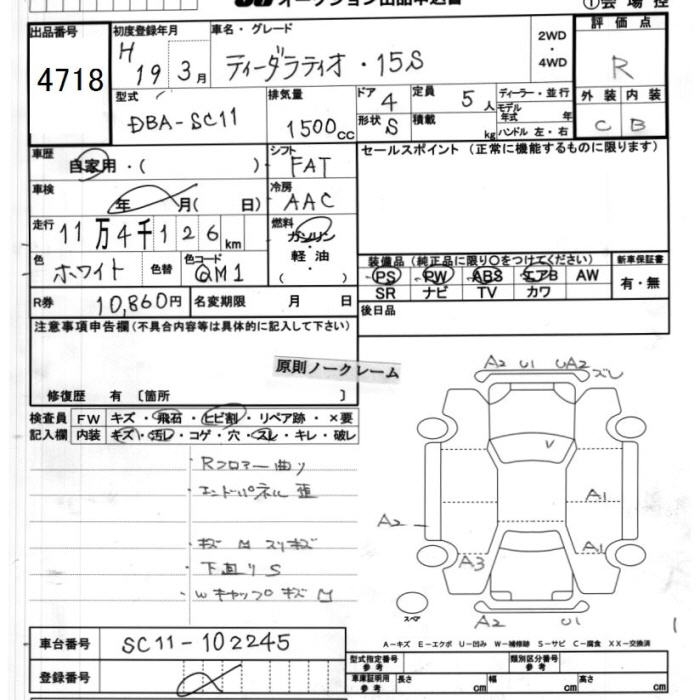 オークション出品申込書
①会場控
出品番号
4718
初度登録年月
H 19 3月
車名・グレード
ティーダラティオ・15S
2WD
・
4WD
評価点
R
型式
DBA-SC11
排気量
1500cc
ドア
4
形状
S
定員
5人
積載
kg
ディーラー・並行
モデル年式 年
ハンドル 左・右
外装 内装
C B
車歴
自家用・( )
シフト
FAT
セールスポイント (正常に機能するものに限ります)
車検
年 月( 日)
冷房
AAC
走行
11万4千126km
燃料
ガソリン・
軽油・
( )
色
ホワイト
色替
色コード
QM1
装備品 (純正品に限り○をつけてください)
PS PW ABS エアB AW
SR ナビ TV カワ
新車保証書
有・無
R券
10,860円
名変期限 月 日
後日品
注意事項申告欄(不具合内容等は具体的に記入して下さい)
原則ノークレーム
修復歴 有 〔箇所 〕
検査員
記入欄
FW キズ・飛石・ヒビ割・リペア跡・×要
内装 キズ・汚レ・コゲ・穴・スレ・キレ・破レ
Rフロアー曲り
エンドパネル 歪
キズ M スリキズ
下廻り S
Wキャップ キズ M
A2 U1 UA2 ズレ
V
A1
A2
A1
A3
スペア
A2 U1
A-キズ E-エクボ U-凹み W-補修跡 S-サビ C-腐食 XX-交換済
車台番号
SC11-102245
登録番号
型式指定番号
参考
類別区分番号
参考
車庫証明用
参考
長さ cm
幅 cm
高さ cm